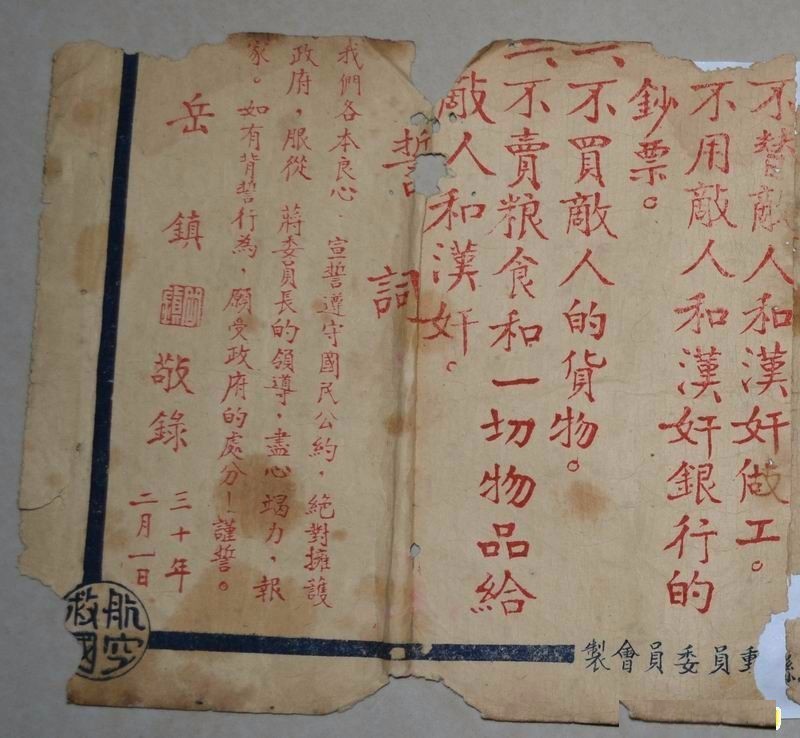 不替敵人和漢奸做工。
不用敵人和漢奸銀行的
鈔票。
一、不買敵人的貨物。
一、不賣粮食和一切物品給
敵人和漢奸。
誓詞
我們各本良心、宣誓遵守國民公約，絕對擁護
政府，服從 蔣委員長的領導，盡心竭力，報
家。如有背誓行為，願受政府的處分！謹誓。
岳鎮 敬錄
三十年
二月一日
航空
救國
動員委員會製
縣